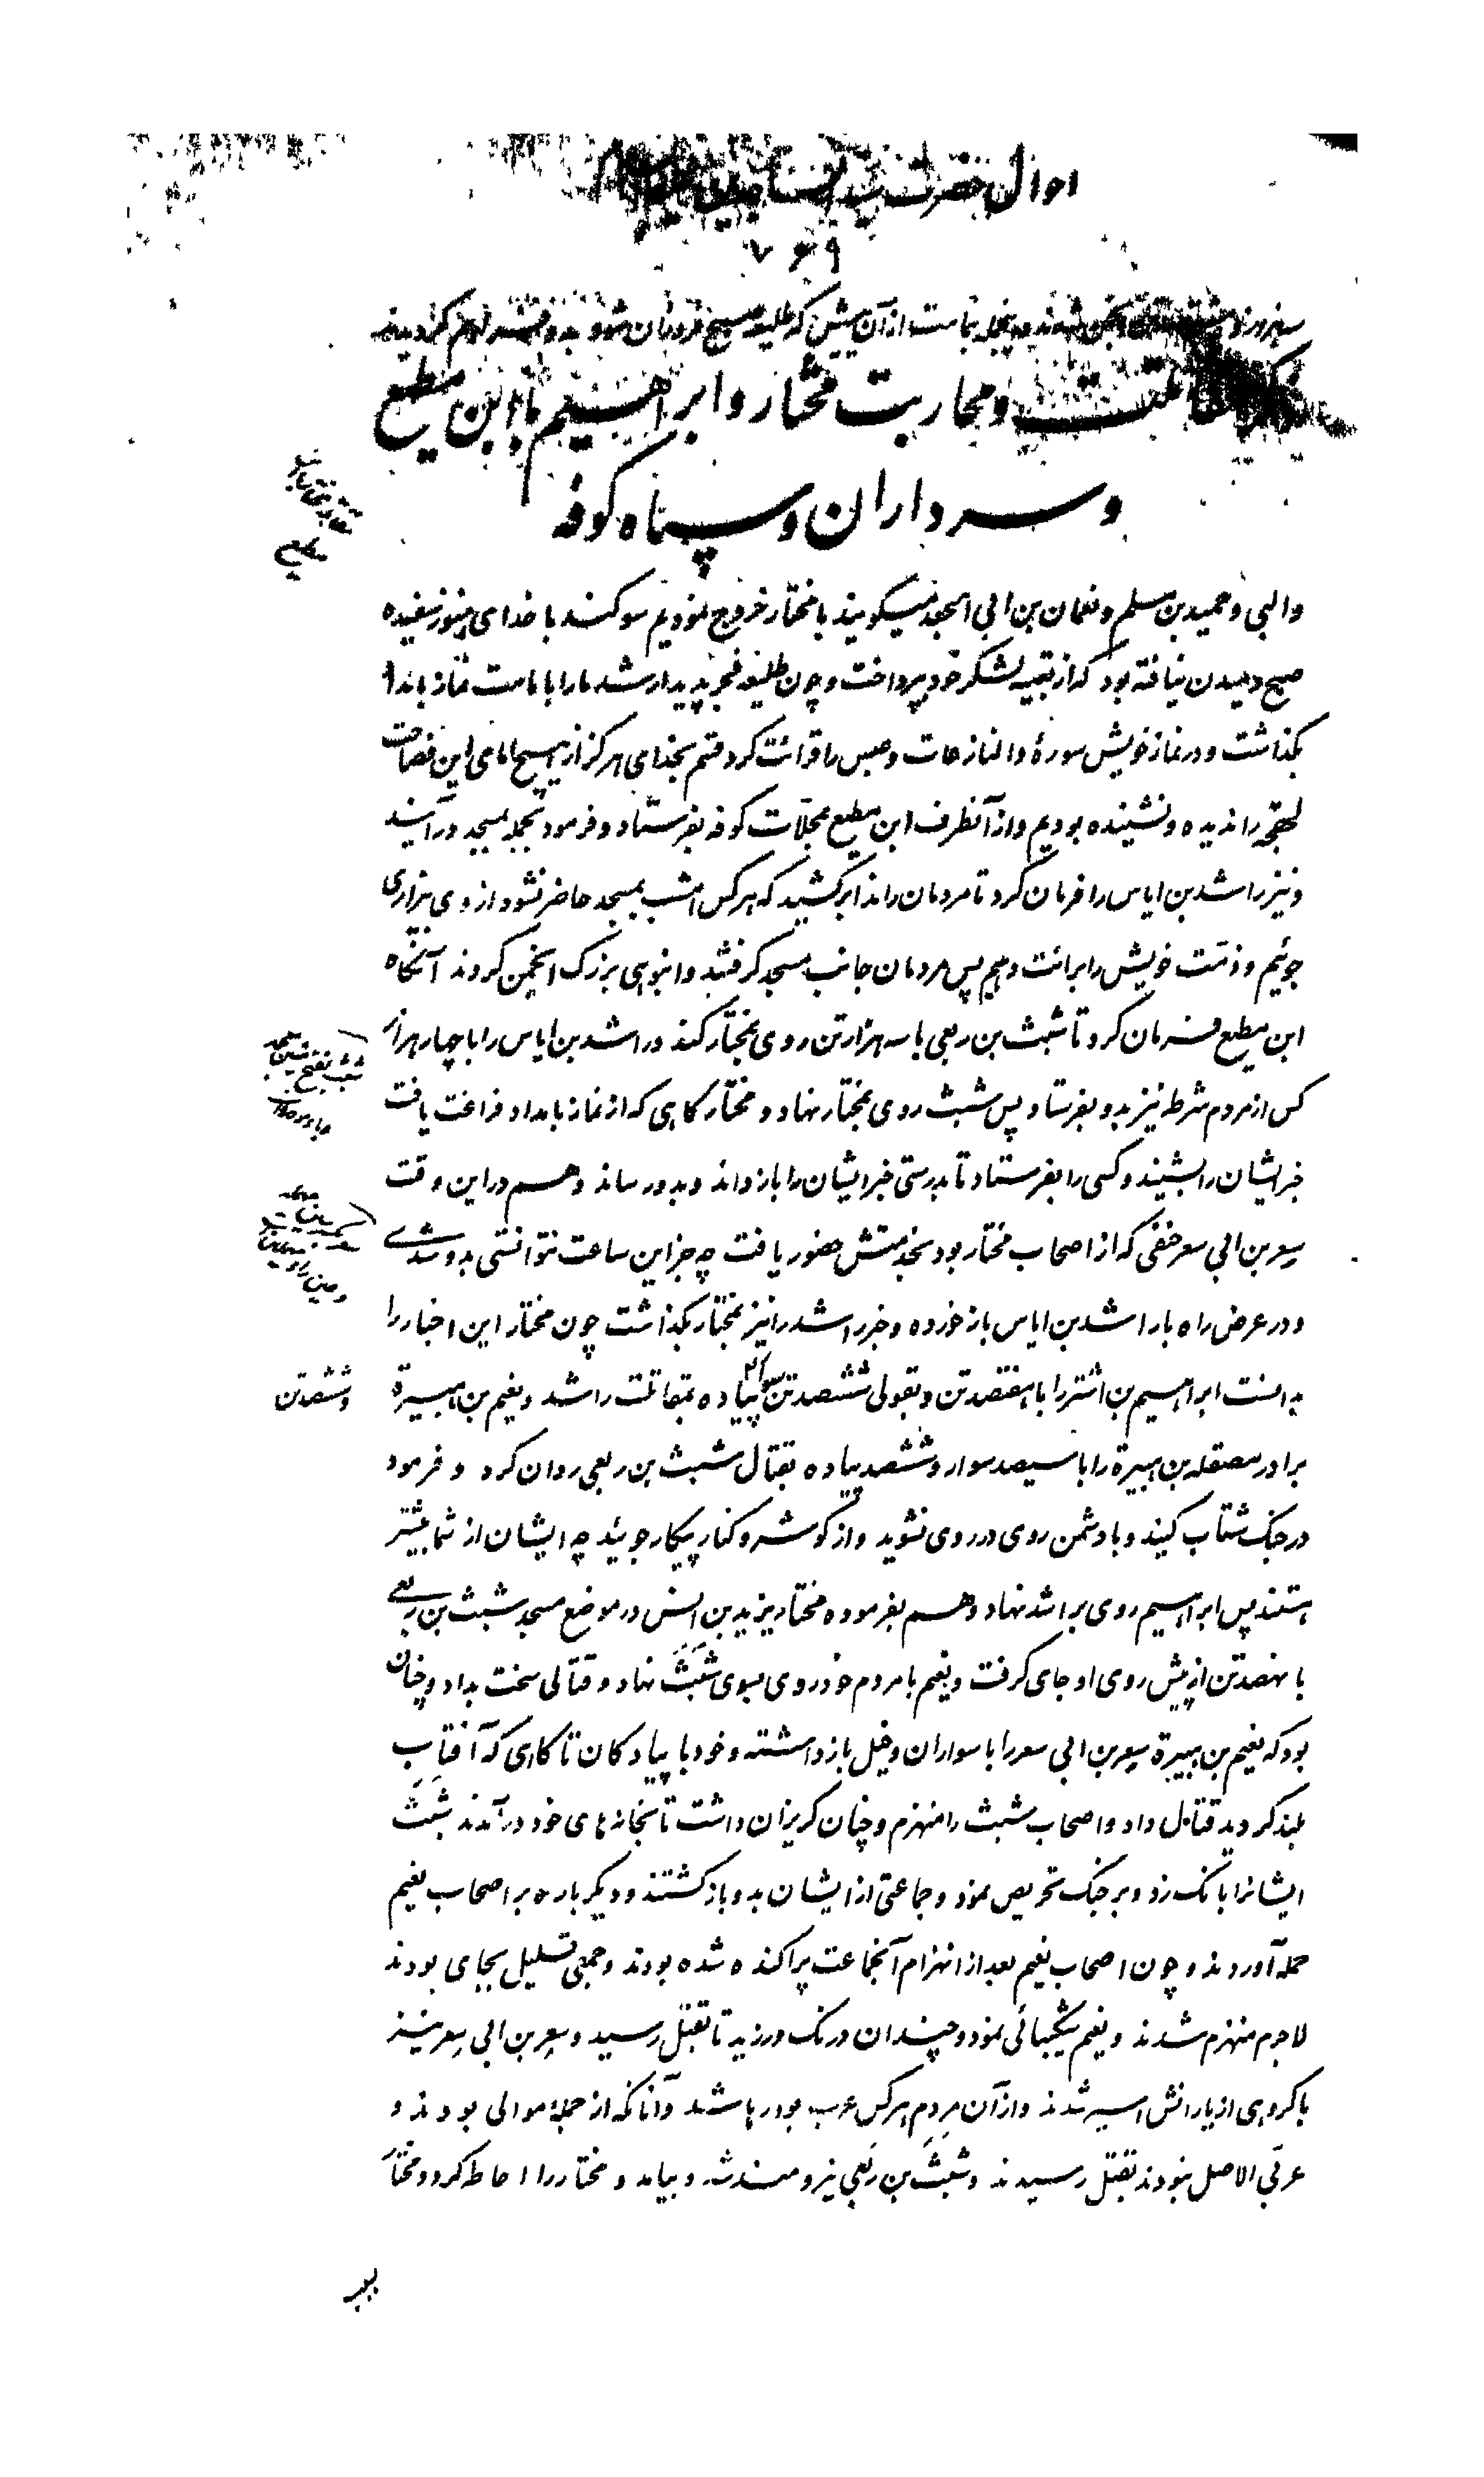 احوال حضرت سید الساجدین
۷۶۹
بجمله بتمامت از آن پیش که طلیعه صبح فروزان شود بدو
مقاتلت و محاربت مختار و ابراهیم با ابن مطیع
و سرداران و سپاه کوفه
والبی و حمید بن مسلم و نعمان بن ابی الجعد میگویند با مختار خروج نمودیم سوگند با خدای هنوز سفیده
صبح دمیدن نیافته بود که از تعبیه لشکر خود بپرداخت و چون طلیعه فجر پدیدار شد ما را بامامت نماز بامداد
بگذاشت و در نماز خویش سورهٔ والنازعات و عبس را قرائت کرد قسم بخدای هرگز از هیچ امامی این فصاحت
لهجه را ندیده و نشنیده بودیم و از آنطرف ابن مطیع بمحلات کوفه بفرستاد و فرمود بجمله بمسجد درآیند
و نیز راشد بن ایاس را فرمان کرد تا مردمان را ندا برکشید که هرکس امشب بمسجد حاضر نشود از وی بیزاری
جوئیم و ذمت خویش را برائت دهیم پس مردمان جانب مسجد گرفتند و انبوهی بزرگ انجمن کردند آنگاه
ابن مطیع فرمان کرد تا شبث بن ربعی با سه هزار تن روی بمختار کند و راشد بن ایاس را با چهار هزار
کس از مردم شرطه نیز بدو بفرستاد پس شبث روی بمختار نهاد و مختار گاهی که از نماز بامداد فراغت یافت
خبر ایشان را بشنید و کسی را بفرستاد تا بدرستی خبر ایشان را باز داند و بدو رساند و هم در این وقت
سعر بن ابی سعر حنفی که از اصحاب مختار بود بخدمتش حضور یافت چه جز این ساعت نتوانستی بدو شدی
و در عرض راه با راشد بن ایاس باز خورده و خبر راشد را نیز بمختار بگذاشت چون مختار این اخبار را
بدانست ابراهیم بن اشتر را با هفتصد تن و بقولی ششصد تن سوار و پیاده بمقاتلت راشد و نعیم بن هبیرة
و ششصد تن
برادر مصقلة بن هبیرة را با سیصد سوار و ششصد پیاده بقتال شبث بن ربعی روان کرد و فرمود
در جنگ شتاب کنید و با دشمن روی در روی نشوید و از گوشه و کنار پیکار جوئید چه ایشان از شما بیشتر
هستند پس ابراهیم روی براشد نهاد و هم بفرموده مختار یزید بن انس در موضع مسجد شبث بن ربعی
با نهصد تن از پیش روی او جای گرفت و نعیم با مردم خود روی بسوی شبث نهاد و قتالی سخت بداد و چنان
بود که نعیم بن هبیرة سعر بن ابی سعر را با سواران و خیل باز داشته و خود با پیادگان تا گاهی که آفتاب
بلند گردید قتال داد و اصحاب شبث را منهزم و چنان گریزان داشت تا بخانه های خود درآمدند شبث
ایشانرا بانگ زد و بر جنگ تحریص نمود و جماعتی از ایشان بدو باز گشتند و دیگر باره بر اصحاب نعیم
حمله آوردند و چون اصحاب نعیم بعد از انهزام آنجماعت پراکنده شده بودند و جمعی قلیل بجای بودند
لاجرم منهزم شدند و نعیم شکیبائی نمود و چندان درنگ ورزید تا بقتل رسید و سعر بن ابی سعر نیز
با گروهی از یارانش اسیر شدند و از آن مردم هرکس عرب بود رها شد و آنانکه از جمله موالی بودند و
عربی الاصل نبودند بقتل رسیدند و شبث بن ربعی نیرومند شد و بیامد و مختار را احاطه کرد و مختار